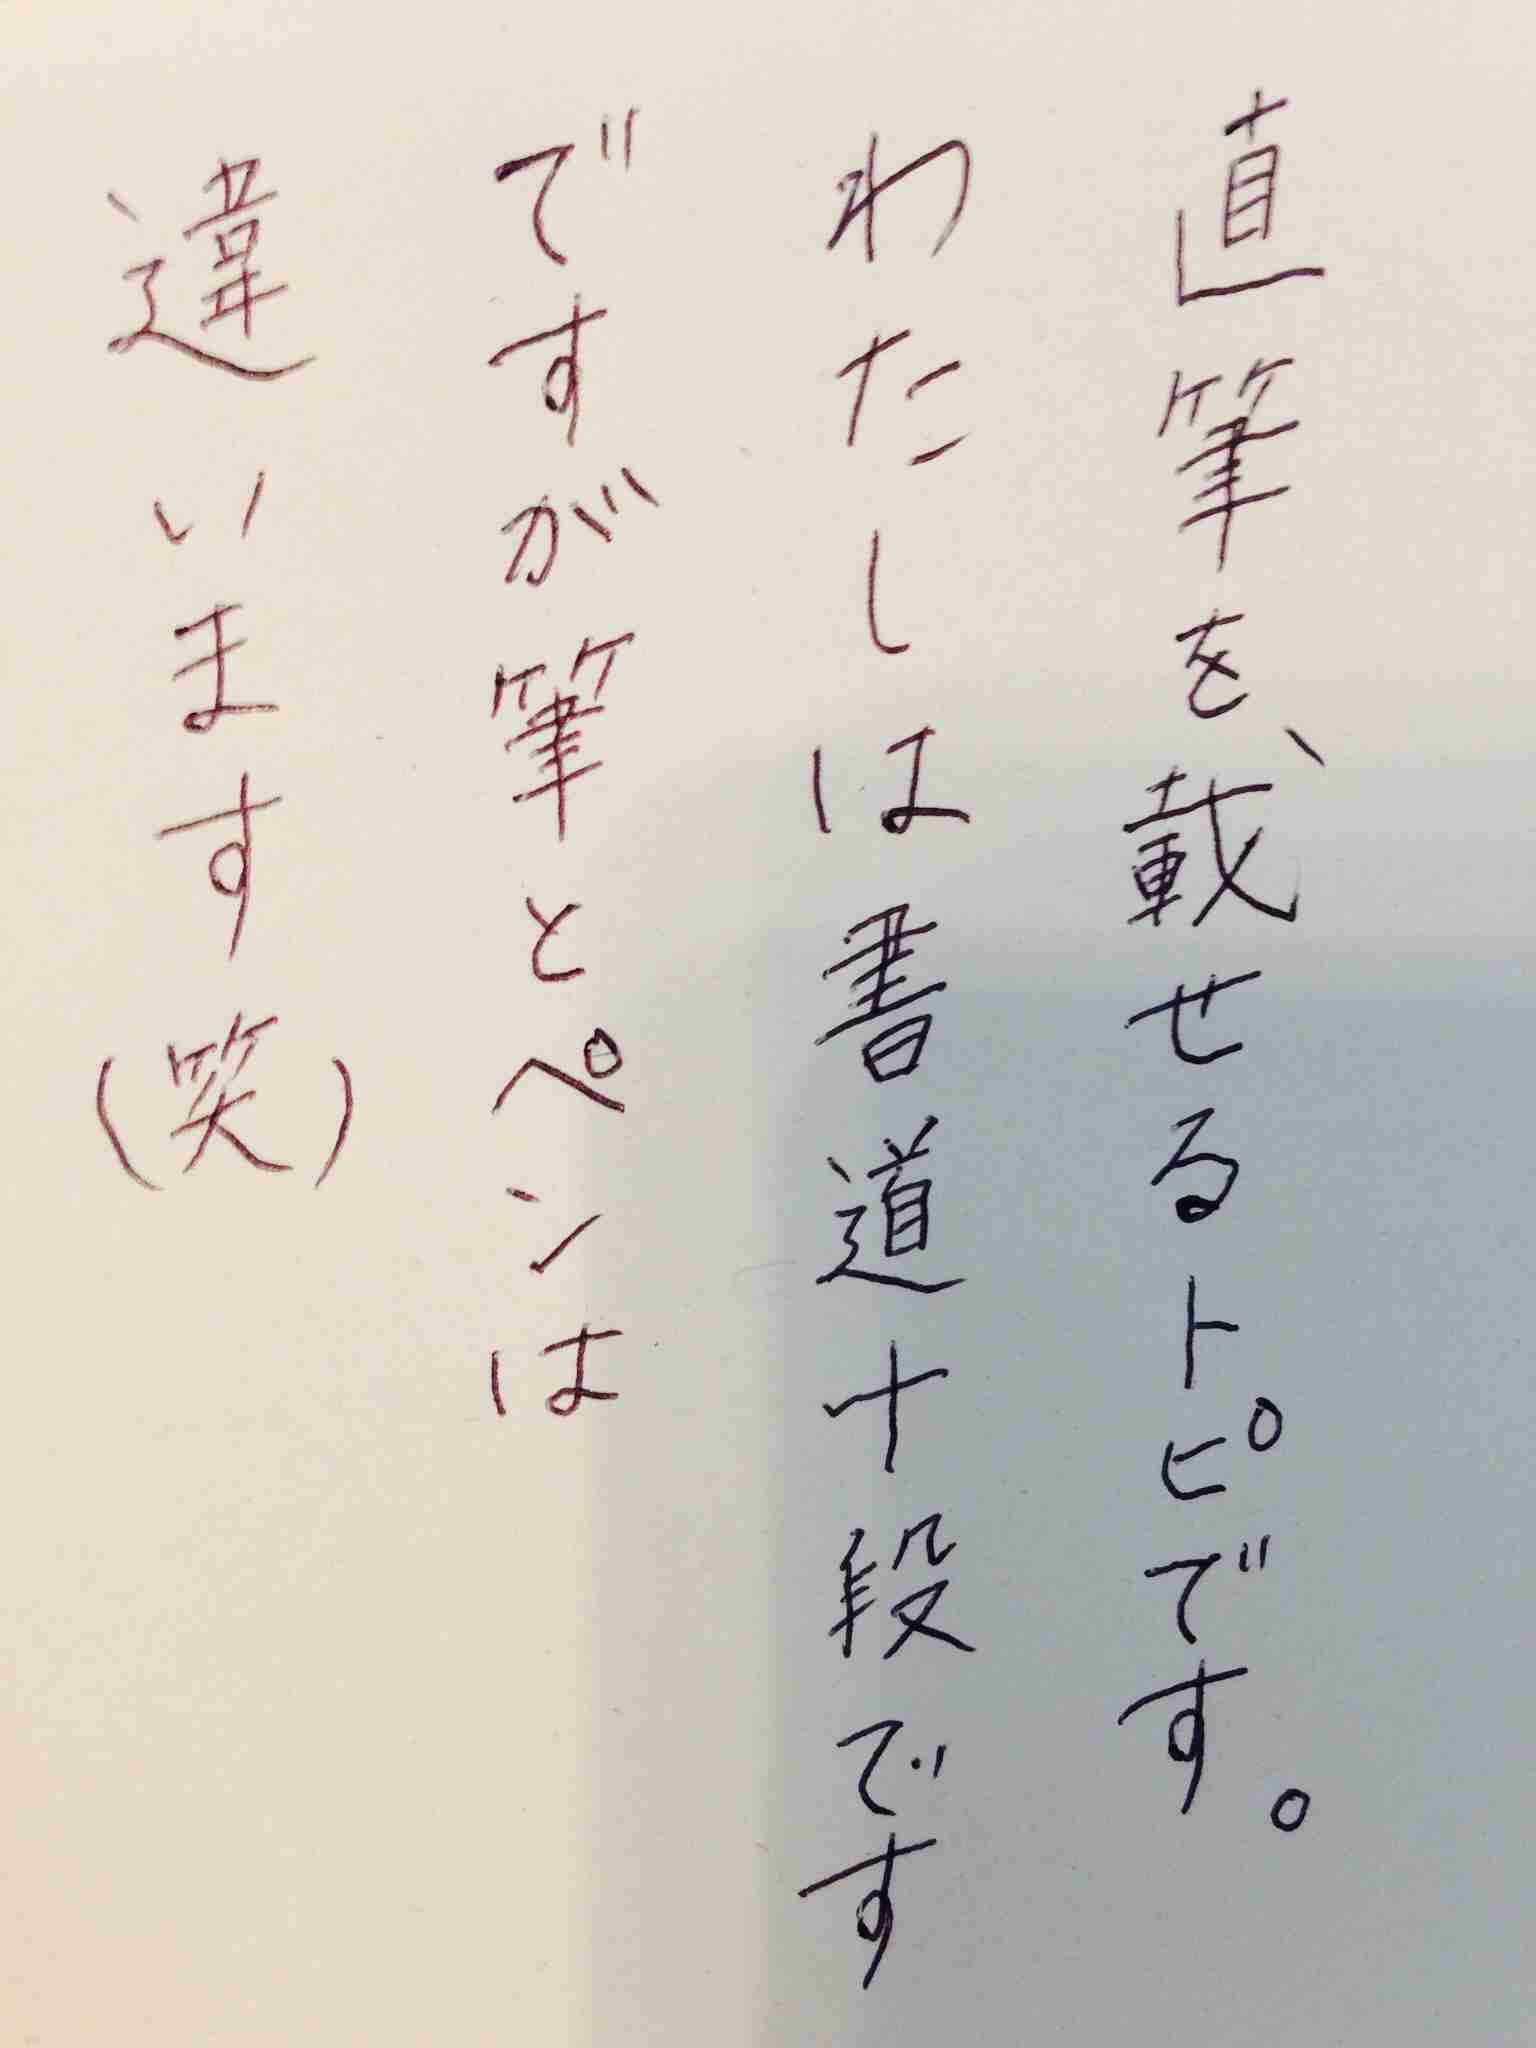 直筆を載せるトピです。
わたしは書道十段です
ですが筆とペンは
違います(笑)